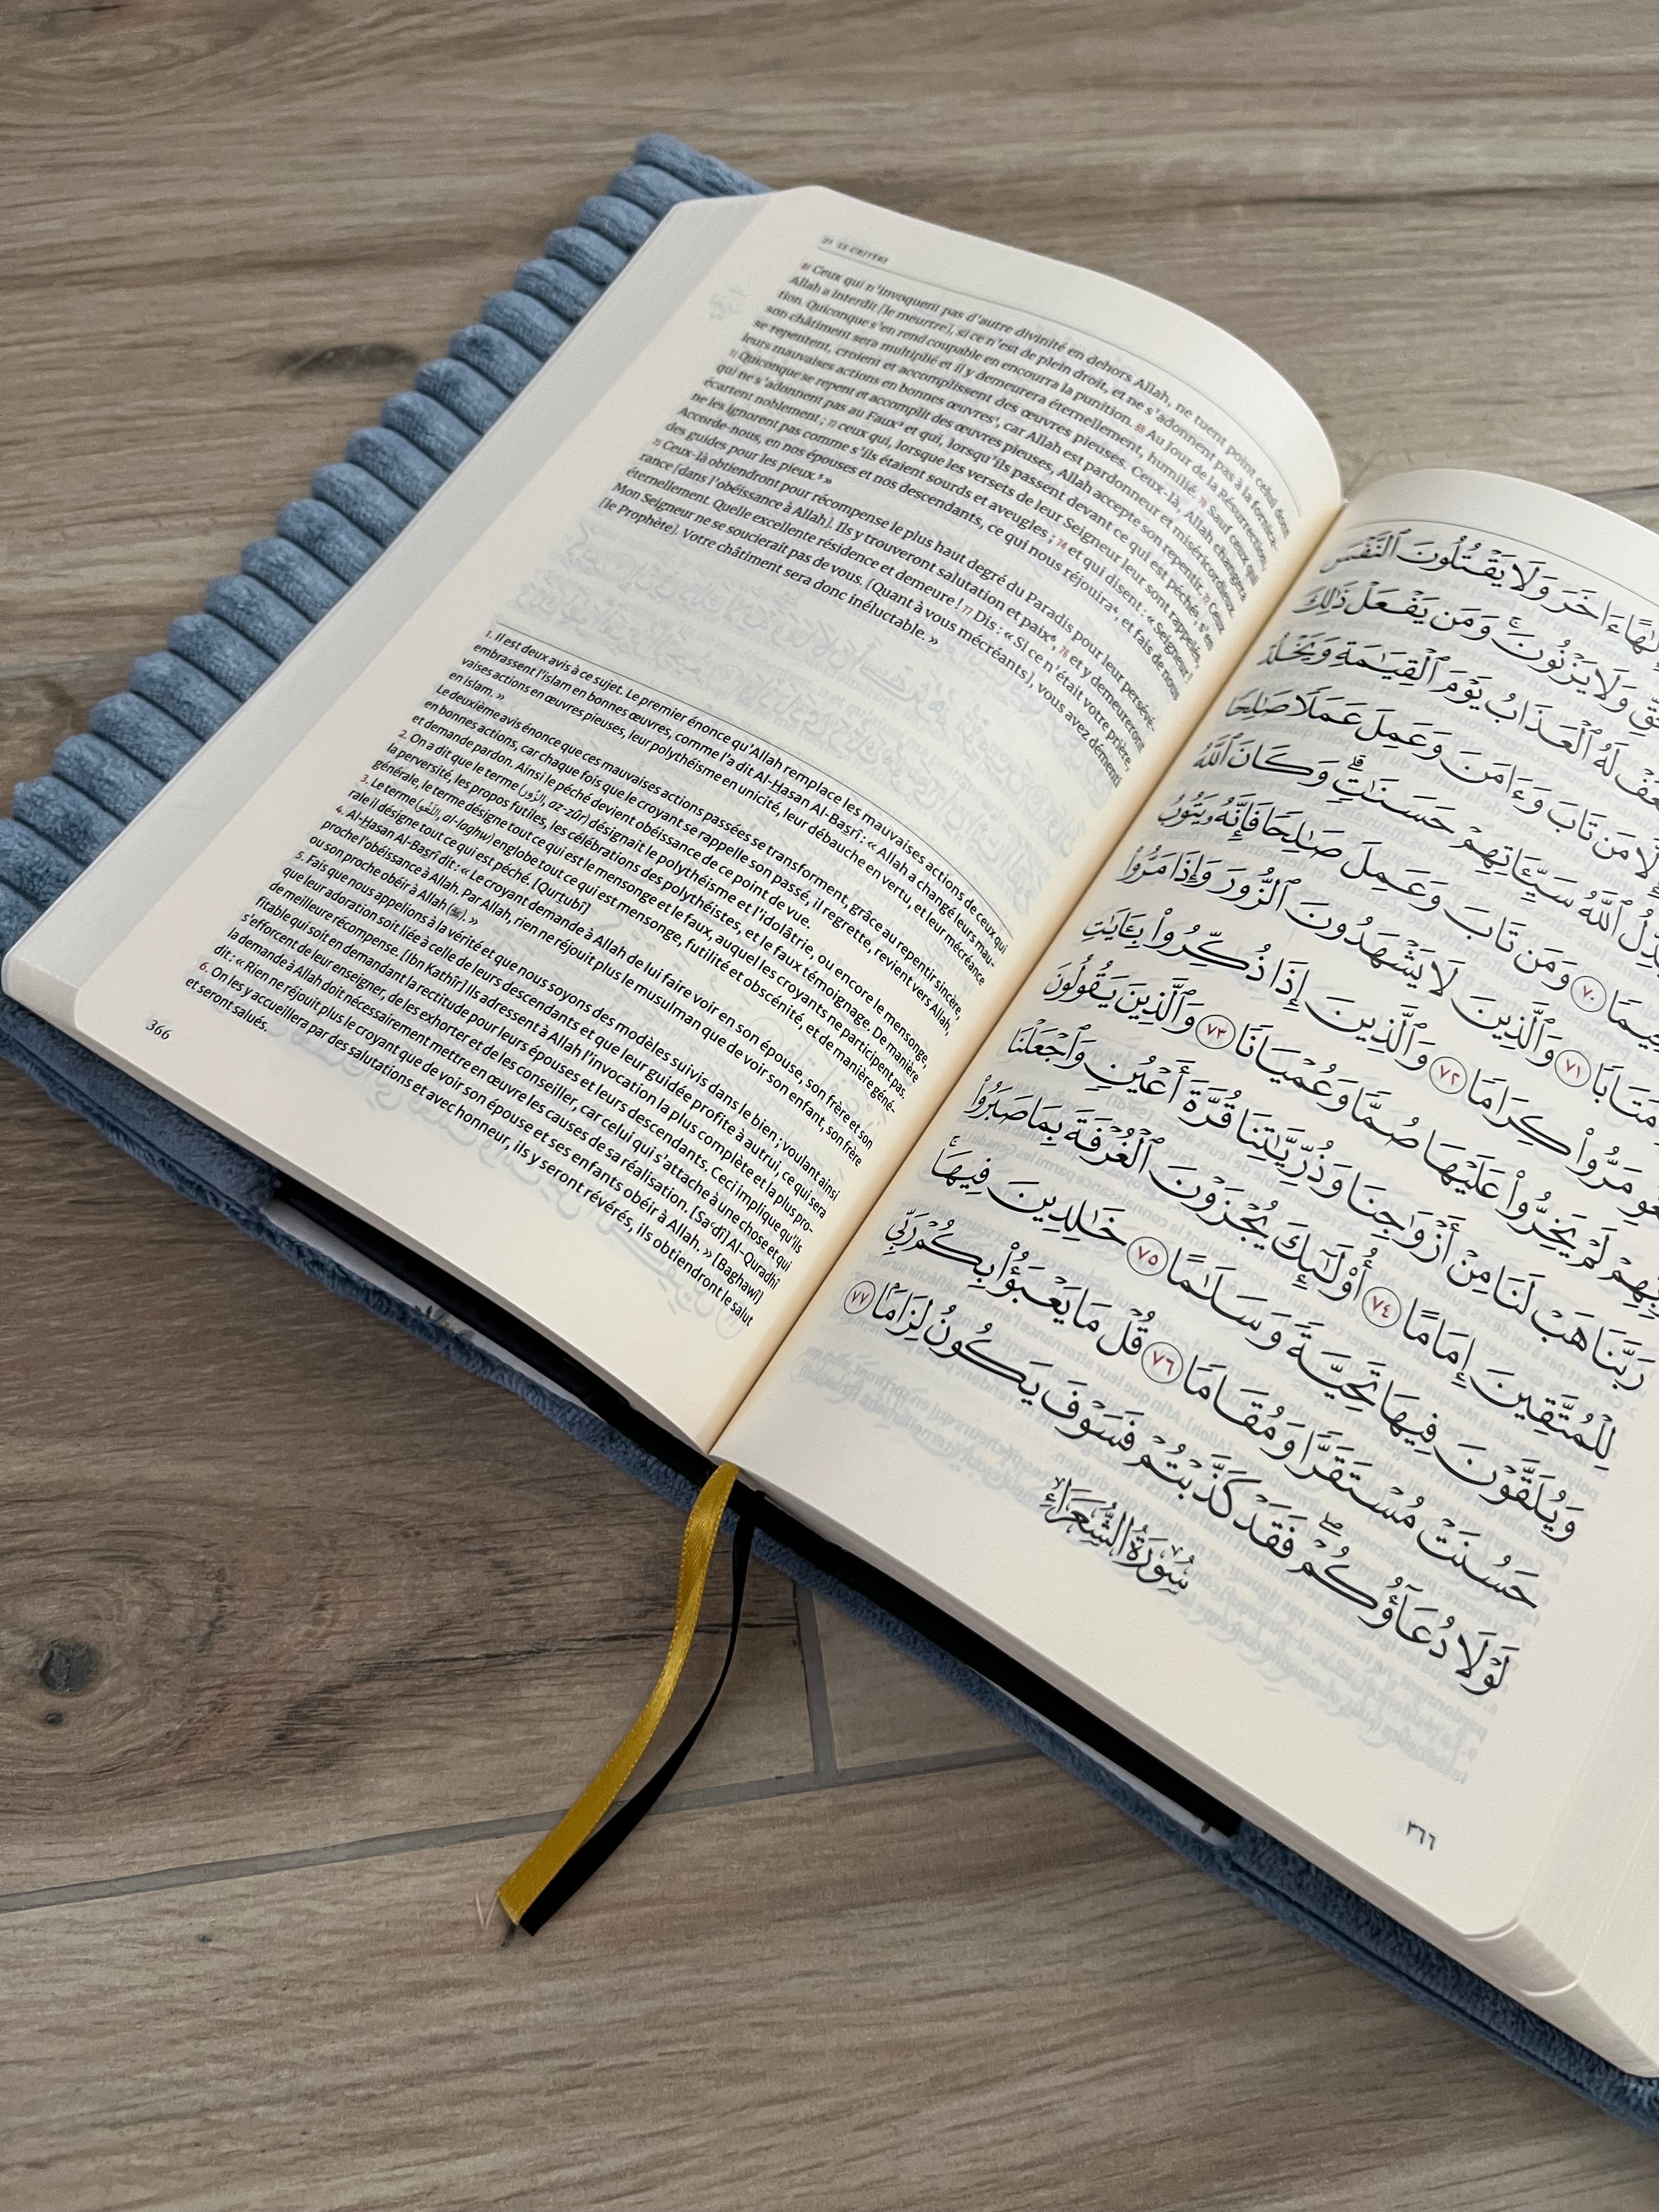 25 LE CRITÈRE
68 Ceux qui n'invoquent pas d'autre divinité en dehors Allah, ne tuent point celui dont
Allah a interdit [le meurtre], si ce n'est de plein droit, et ne s'adonnent pas à la fornica-
tion. Quiconque s'en rend coupable en encourra la punition. 69 Au Jour de la Résurrection,
son châtiment sera multiplié et il y demeurera éternellement, humilié. 70 Sauf ceux qui
se repentent, croient et accomplissent des œuvres pieuses. Ceux-là, Allah changera
leurs mauvaises actions en bonnes œuvres¹, car Allah est pardonneur et miséricordieux
71 Quiconque se repent et accomplit des œuvres pieuses, Allah accepte son repentir. 72 Ceux
qui ne s'adonnent pas au Faux² et qui, lorsqu'ils passent devant ce qui est péché³, s'en
écartent noblement ; 73 ceux qui, lorsque les versets de leur Seigneur leur sont rappelés,
ne les ignorent pas comme s'ils étaient sourds et aveugles ; 74 et qui disent : « Seigneur !
Accorde-nous, en nos épouses et nos descendants, ce qui nous réjouira⁴, et fais de nous
des guides pour les pieux.⁵ »
75 Ceux-là obtiendront pour récompense le plus haut degré du Paradis pour leur persévé-
rance [dans l'obéissance à Allah]. Ils y trouveront salutation et paix⁶, 76 et y demeureront
éternellement. Quelle excellente résidence et demeure ! 77 Dis : « Si ce n'était votre prière,
Mon Seigneur ne se soucierait pas de vous. [Quant à vous mécréants], vous avez démenti
[le Prophète]. Votre châtiment sera donc inéluctable. »
1. Il est deux avis à ce sujet. Le premier énonce qu'Allah remplace les mauvaises actions de ceux qui
embrassent l'islam en bonnes œuvres, comme l'a dit Al-Ḥasan Al-Baṣrî : « Allah a changé leurs mau-
vaises actions en œuvres pieuses, leur polythéisme en unicité, leur débauche en vertu, et leur mécréance
en islam. »
Le deuxième avis énonce que ces mauvaises actions passées se transforment, grâce au repentir sincère,
en bonnes actions, car chaque fois que le croyant se rappelle son passé, il regrette, revient vers Allah,
et demande pardon. Ainsi le péché devient obéissance de ce point de vue.
2. On a dit que le terme (الزُّور, az-zûr) désignait le polythéisme et l'idolâtrie, ou encore le mensonge,
la perversité, les propos futiles, les célébrations des polythéistes, et le faux témoignage. De manière
générale, le terme désigne tout ce qui est le mensonge et le faux, auquel les croyants ne participent pas.
3. Le terme (اللَّغْو, al-laghw) englobe tout ce qui est mensonge, futilité et obscénité, et de manière géné-
rale il désigne tout ce qui est péché. [Qurṭubî]
4. Al-Ḥasan Al-Baṣrî dit : « Le croyant demande à Allah de lui faire voir en son épouse, son frère et son
proche l'obéissance à Allah. Par Allah, rien ne réjouit plus le musulman que de voir son enfant, son frère
ou son proche obéir à Allah (ﷻ). »
5. Fais que nous appelions à la vérité et que nous soyons des modèles suivis dans le bien ; voulant ainsi
que leur adoration soit liée à celle de leurs descendants et que leur guidée profite à autrui, ce qui sera
de meilleure récompense. [Ibn Kathîr] Ils adressent à Allah l'invocation la plus complète et la plus pro-
fitable qui soit en demandant la rectitude pour leurs épouses et leurs descendants. Ceci implique qu'ils
s'efforcent de leur enseigner, de les exhorter et de les conseiller, car celui qui s'attache à une chose et qui
la demande à Allah doit nécessairement mettre en œuvre les causes de sa réalisation. [Saʿdî] Al-Quradhî
dit : « Rien ne réjouit plus le croyant que de voir son épouse et ses enfants obéir à Allah. » [Baghawî]
6. On les y accueillera par des salutations et avec honneur, ils y seront révérés, ils obtiendront le salut
et seront salués.
366
ءَاخَرَ وَلَا يَقْتُلُونَ ٱلنَّفْسَ
وَلَا يَزْنُونَ ۚ وَمَن يَفْعَلْ ذَٰلِكَ
لَهُ ٱلْعَذَابُ يَوْمَ ٱلْقِيَٰمَةِ وَيَخْلُدْ
مَن تَابَ وَءَامَنَ وَعَمِلَ عَمَلًا صَٰلِحًا
ٱللَّهُ سَيِّـَٔاتِهِمْ حَسَنَٰتٍ ۗ وَكَانَ ٱللَّهُ
٧٠ وَمَن تَابَ وَعَمِلَ صَٰلِحًا فَإِنَّهُۥ يَتُوبُ
مَتَابًا ٧١ وَٱلَّذِينَ لَا يَشْهَدُونَ ٱلزُّورَ وَإِذَا مَرُّوا۟
مَرُّوا۟ كِرَامًا ٧٢ وَٱلَّذِينَ إِذَا ذُكِّرُوا۟ بِـَٔايَٰتِ
لَمْ يَخِرُّوا۟ عَلَيْهَا صُمًّا وَعُمْيَانًا ٧٣ وَٱلَّذِينَ يَقُولُونَ
رَبَّنَا هَبْ لَنَا مِنْ أَزْوَٰجِنَا وَذُرِّيَّٰتِنَا قُرَّةَ أَعْيُنٍ وَٱجْعَلْنَا
لِلْمُتَّقِينَ إِمَامًا ٧٤ أُو۟لَٰٓئِكَ يُجْزَوْنَ ٱلْغُرْفَةَ بِمَا صَبَرُوا۟
وَيُلَقَّوْنَ فِيهَا تَحِيَّةً وَسَلَٰمًا ٧٥ خَٰلِدِينَ فِيهَا ۚ
حَسُنَتْ مُسْتَقَرًّا وَمُقَامًا ٧٦ قُلْ مَا يَعْبَؤُا۟ بِكُمْ رَبِّى
لَوْلَا دُعَآؤُكُمْ ۖ فَقَدْ كَذَّبْتُمْ فَسَوْفَ يَكُونُ لِزَامًۢا ٧٧
سُورَةُ الشُّعَرَاءِ
٣٦٦